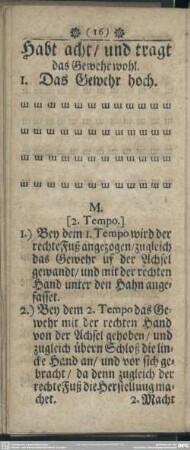 (16)
Habt acht/ und tragt
das Gewehr wohl.
1. Das Gewehr hoch.
M.
[2. Tempo.]
1.) Bey dem 1. Tempo wird der
rechte Fuß angezogen/ zugleich
das Gewehr uf der Achsel
gewandt/ und mit der rechten
Hand unter den Hahn ange-
fasset.
2.) Bey dem 2. Tempo das Ge-
wehr mit der rechten Hand
von der Achsel gehoben/ und
zugleich übern Schloß die lin-
cke Hand an/ und vor sich ge-
bracht/ da denn zugleich der
rechte Fuß die Herstellung ma-
chet. 2. Macht